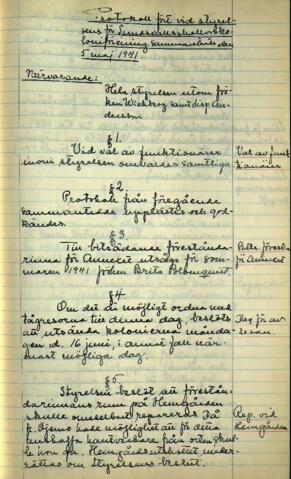 Protokoll fört vid styrel-
sens för Sundsvalls skollovsko-
loniförening sammanträde den
5 maj 1941.
Närvarande:
Hela styrelsen utom frö-
ken Wickberg samt disp. An-
dersson
§ 1.
Vid val av funktionärer
inom styrelsen omvaldes samtliga.
Val av funk
tionärer
§ 2.
Protokoll från föregående
sammanträde upplästes och god-
kändes.
§ 3.
Till biträdande förestånda-
rinna för Annexet utsågs för som-
maren 1941 fröken Brita Blomquist.
förest.
f. Annexet
§ 4.
Om det är möjligt ordna med
tågresorna till denna dag, beslöts
att utsända kolonierna månda-
gen d. 16 juni, i annat fall när-
mast möjliga dag.
Dag för av
resan.
§ 5.
Styrelsen beslöt att förestån-
darinnans rum på Hemgården
skulle omedelbart repareras. Då
möjlighet att för detta
hantverkare från orten skul-
le
Hemgårdens
rättas om styrelsens beslut.
Rep. vid
Hemgården